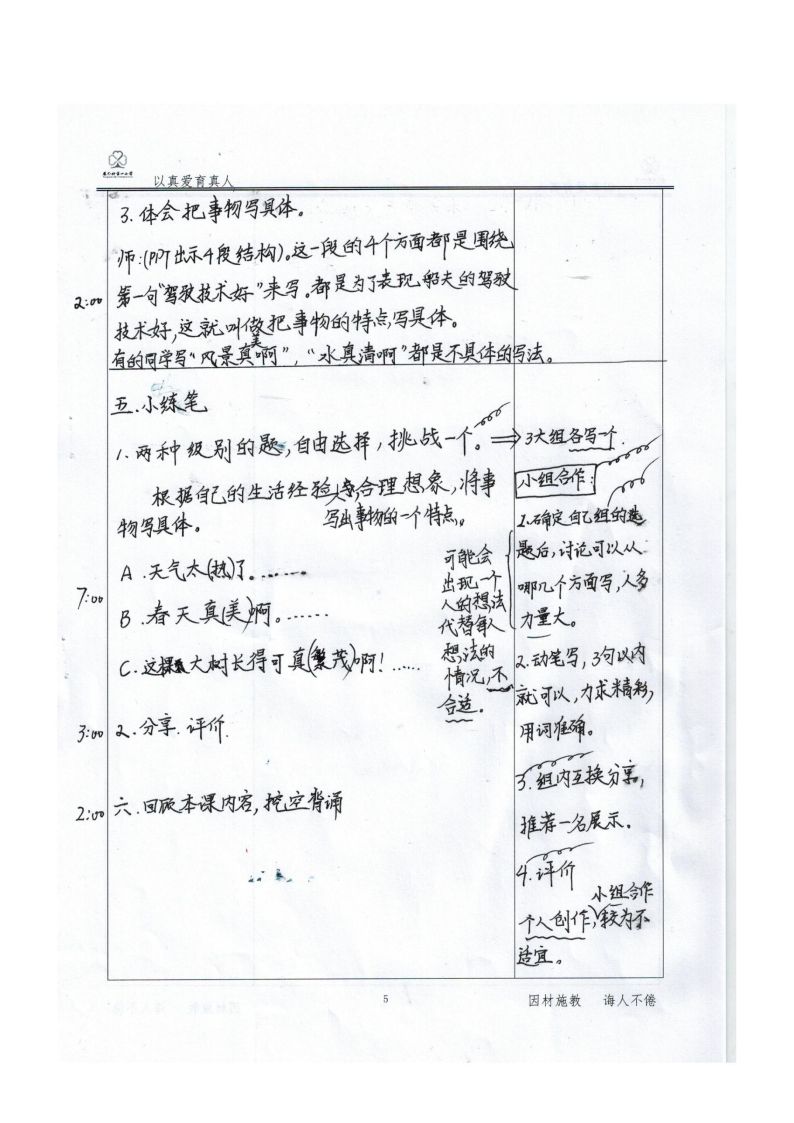 以真爱育真人
3. 体会把事物写具体。
师:(PPT出示4段结构)。这一段的4个方面都是围绕
2:00
第一句“驾驶技术好”来写。都是为了表现船夫的驾驶
技术好,这就叫做把事物的特点写具体。
美
有的同学写“风景真啊”,“水真清啊”都是不具体的写法。
五.小练笔
1. 两种级别的题,自由选择,挑战一个。⇒
根据自己的生活经验,合理想象,将事
物写具体。
写出事物的一个特点。
A. 天气太(热)了。……
7:00
B. 春天真(美)啊。……
C. 这棵大树长得可真(繁茂)啊!……
可能会
出现一个
人的想法
代替每人
想法的
情况,不
合适。
3:00
2. 分享.评价.
2:00
六.回顾本课内容,挖空背诵
3大组各写一个.
小组合作:
1.确定自己组的选
题后,讨论可以从
哪几个方面写,人多
力量大。
2.动笔写,3句以内
就可以,力求精彩,
用词准确。
3.组内互换分享,
推荐一名展示。
4.评价
小组合作
个人创作,较为不
适宜。
5
因材施教 诲人不倦